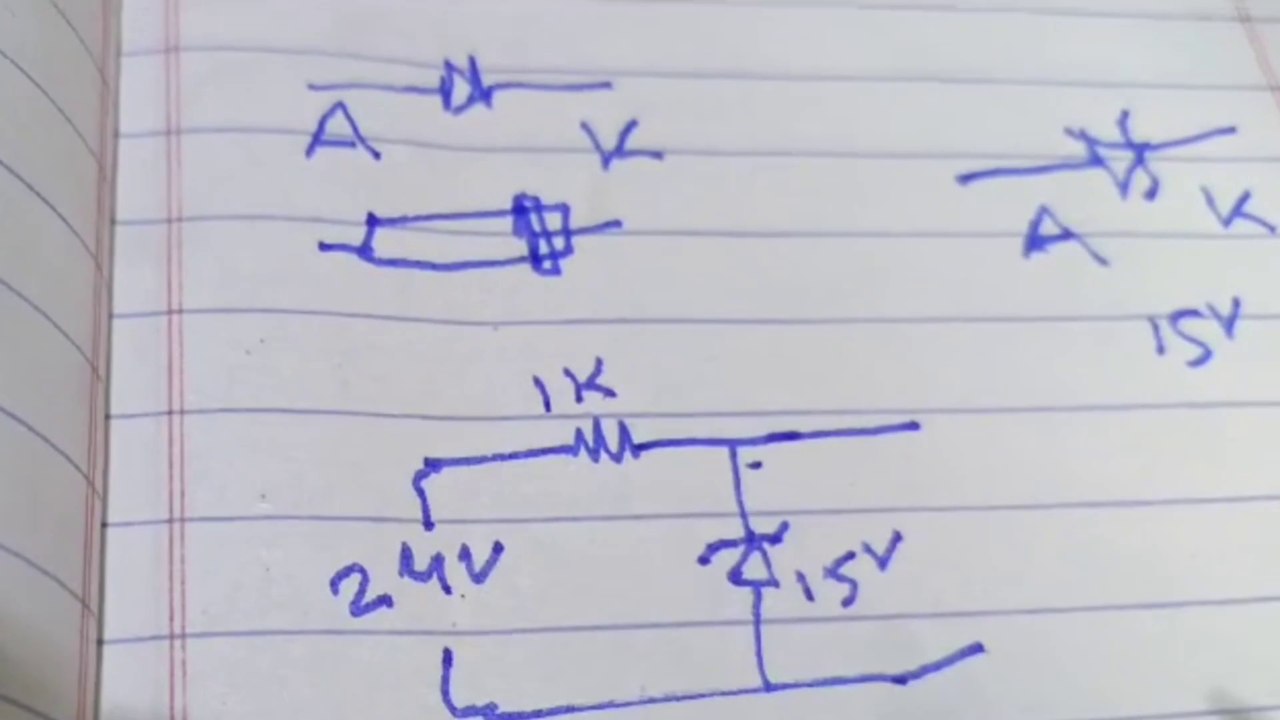 A K
A K
15V
1K
24V
15V